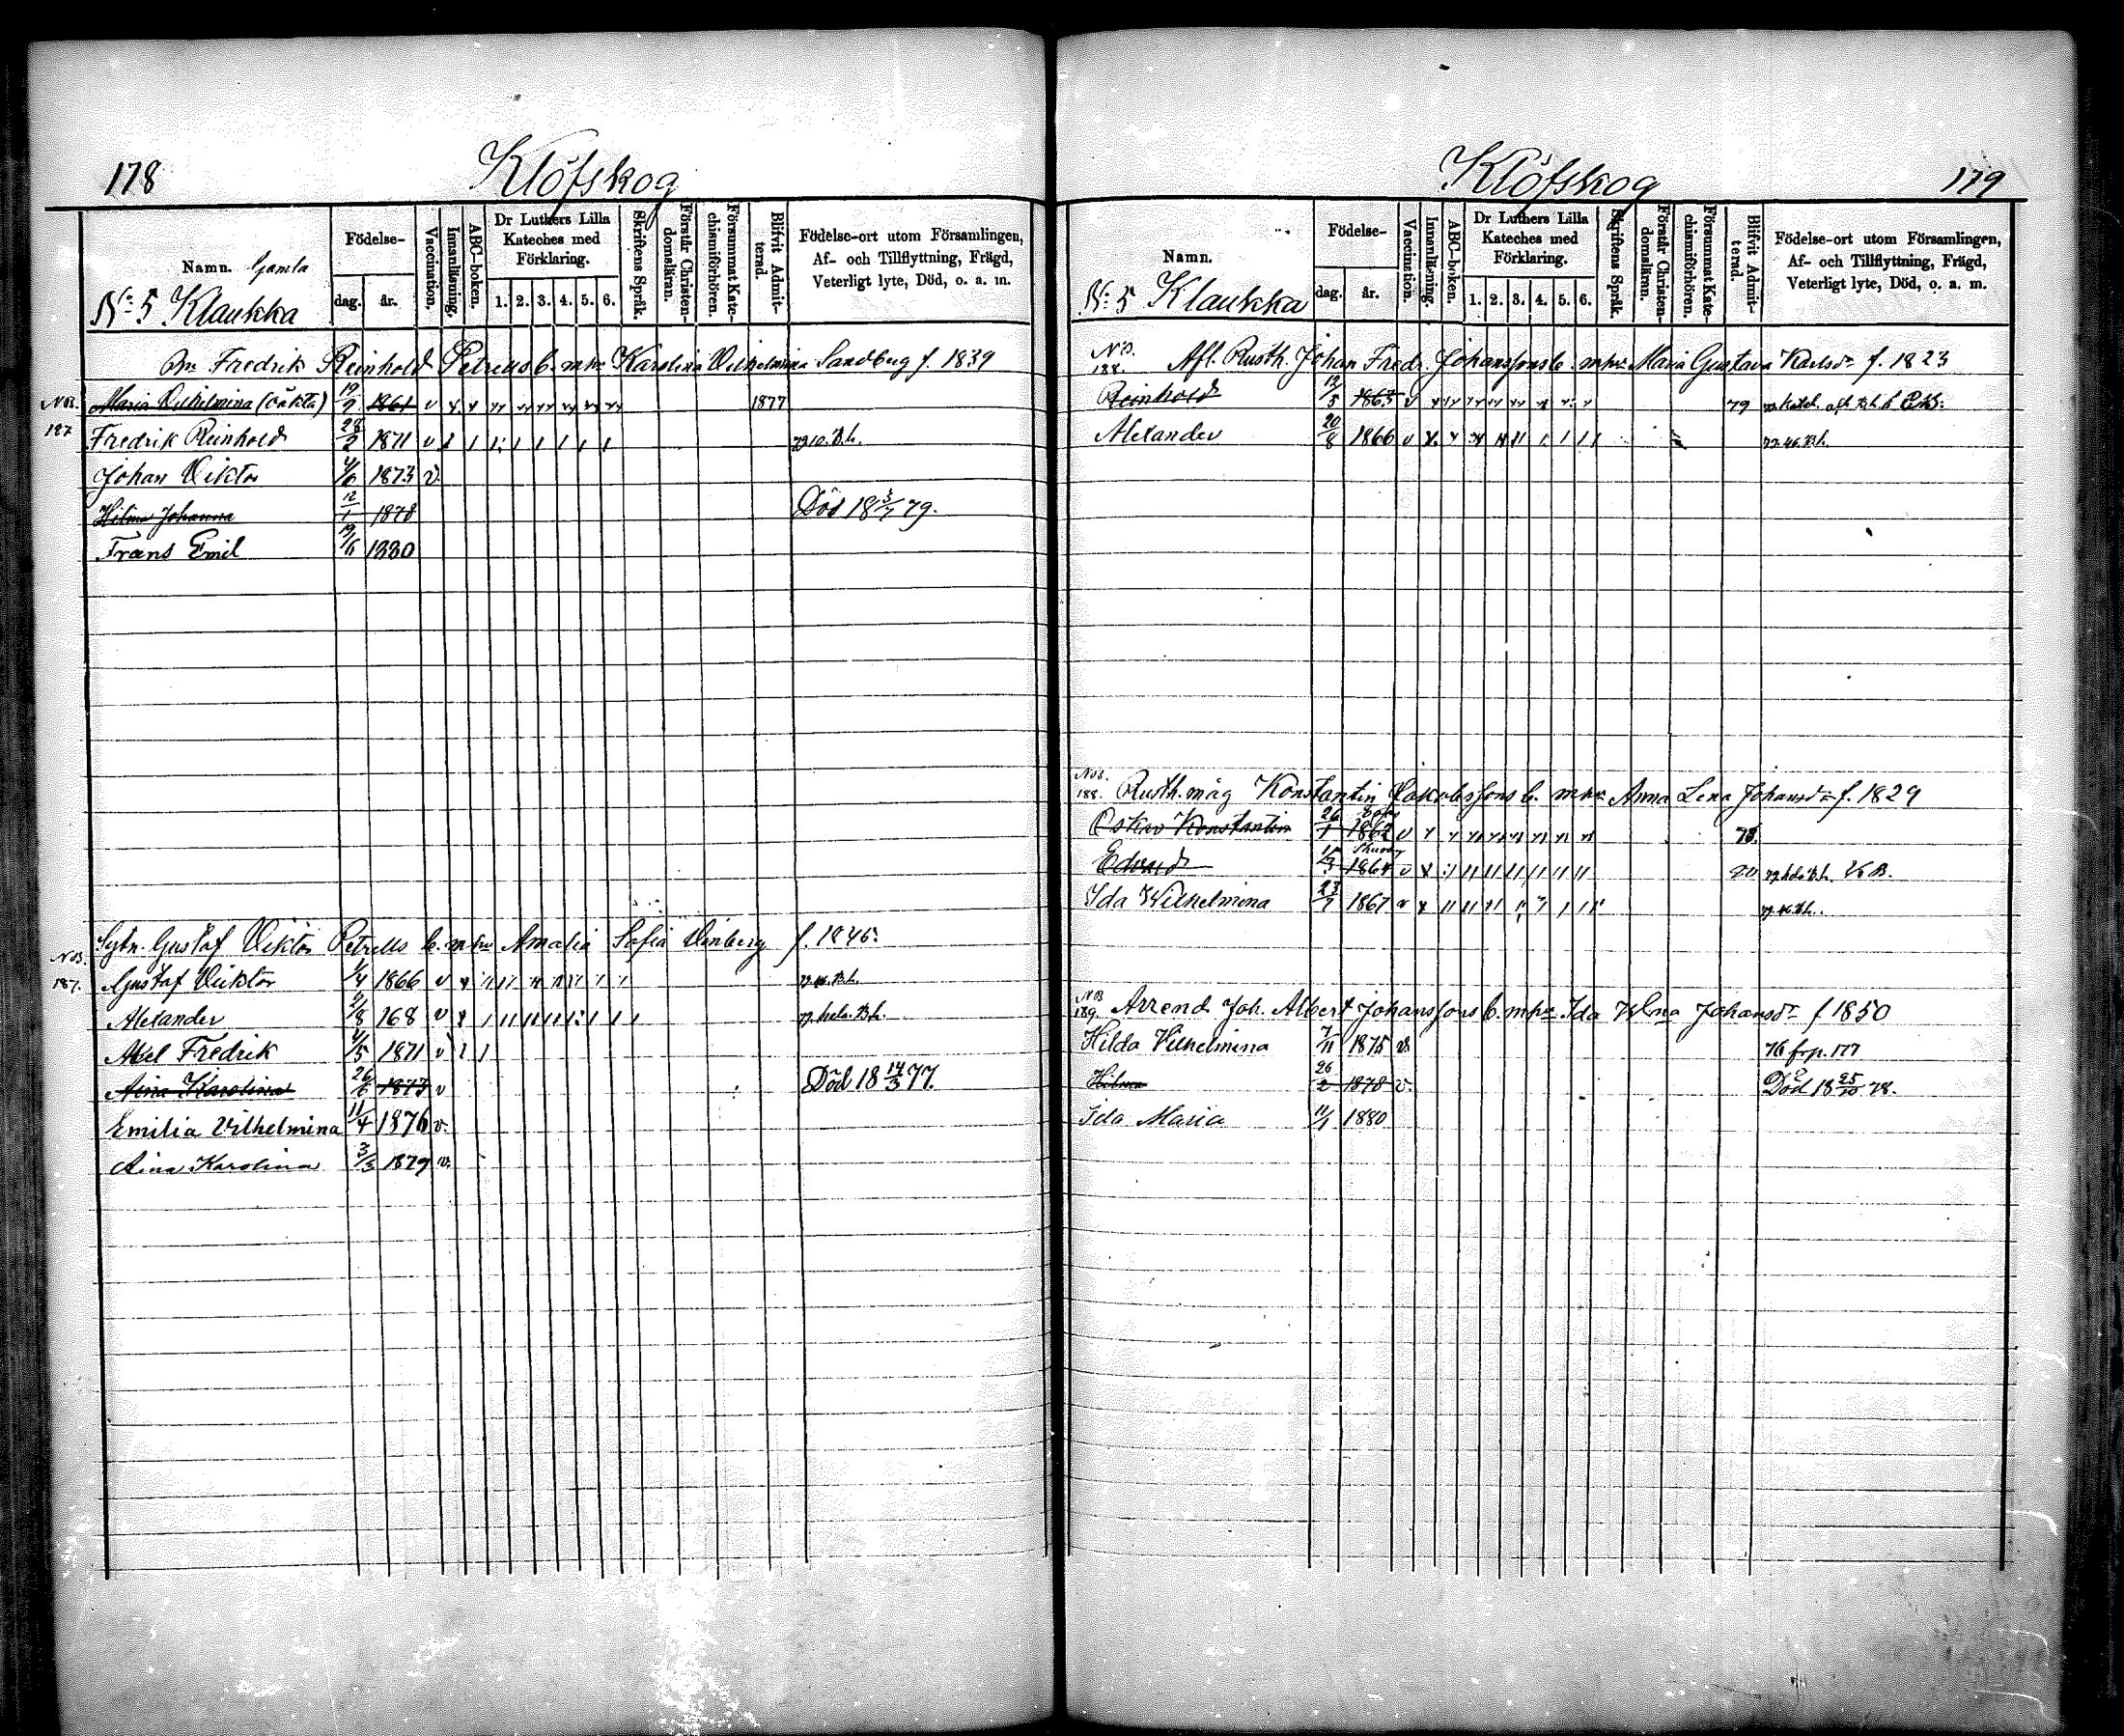 178
Klöfskog
Namn. Gamla
No 5 Klaukka
Födelse-
dag.
år.
Vaccination.
Innanläsning.
ABC-boken.
Dr Luthers Lilla
Kateches med
Förklaring.
1. 2. 3. 4. 5. 6.
Skriftens Språk.
Förstår Christen-
domsläran.
Försummat Kate-
chismiförhören.
Blifvit Admit-
terad.
Födelse-ort utom Församlingen,
Af- och Tillflyttning, Frägd,
Veterligt lyte, Död, o. a. m.
Fredrik Reinhold Petrells b. m hu Karolina Vilhelmina Sandberg f. 1839
NB. 187
Maria Vilhelmina (oäkta) 19/9 1861 v 1877
Fredrik Reinhold 28/2 1871 v
Johan Viktor 4/6 1873 v.
Hilma Johanna 12/1 1878 Död 18 3/7 79.
Frans Emil 19/6 1880
Sytn. Gustaf Viktor Petrells b. m hu Amalia Sofia Vinberg f. 1846.
NB. 187.
Gustaf Viktor 1/4 1866 v
Alexander 2/8 168 v
Axel Fredrik 4/5 1871 v
Aina Karolina 26/6 1873 v Död 18 14/3 77.
Emilia Vilhelmina 11/4 1876 v.
Aina Karolina 3/3 1879 v.
Klöfskog
179
Namn.
No 5 Klaukka
Födelse-
dag.
år.
Vaccination.
Innanläsning.
ABC-boken.
Dr Luthers Lilla
Kateches med
Förklaring.
1. 2. 3. 4. 5. 6.
Skriftens Språk.
Förstår Christen-
domsläran.
Försummat Kate-
chismiförhören.
Blifvit Admit-
terad.
Födelse-ort utom Församlingen,
Af- och Tillflyttning, Frägd,
Veterligt lyte, Död, o. a. m.
NB. 188. Afl. Rusth. Johan Fredr. Johanssons b. m hu Maria Gustava Karlsdr f. 1823
Reinhold 12/5 1863 v 79
Alexander 20/8 1866 v
NB. 188. Rusth. måg Konstantin Jakobssons b. m hu Anna Lena Johansdr f. 1829
Oskar Konstantin 26/1 1862 v 78.
Edvard 3 1864 v
Ida Wilhelmina 23/7 1867
NB 189. Arrend. Joh. Albert Johanssons b. m hu Ida Wlna Johansdr f 1850
Hilda Vilhelmina 7/11 1875 v. 76 fr p. 177
Hilma 26/2 1878 v. Död 18 25/10 78.
Ida Maria 11/1 1880